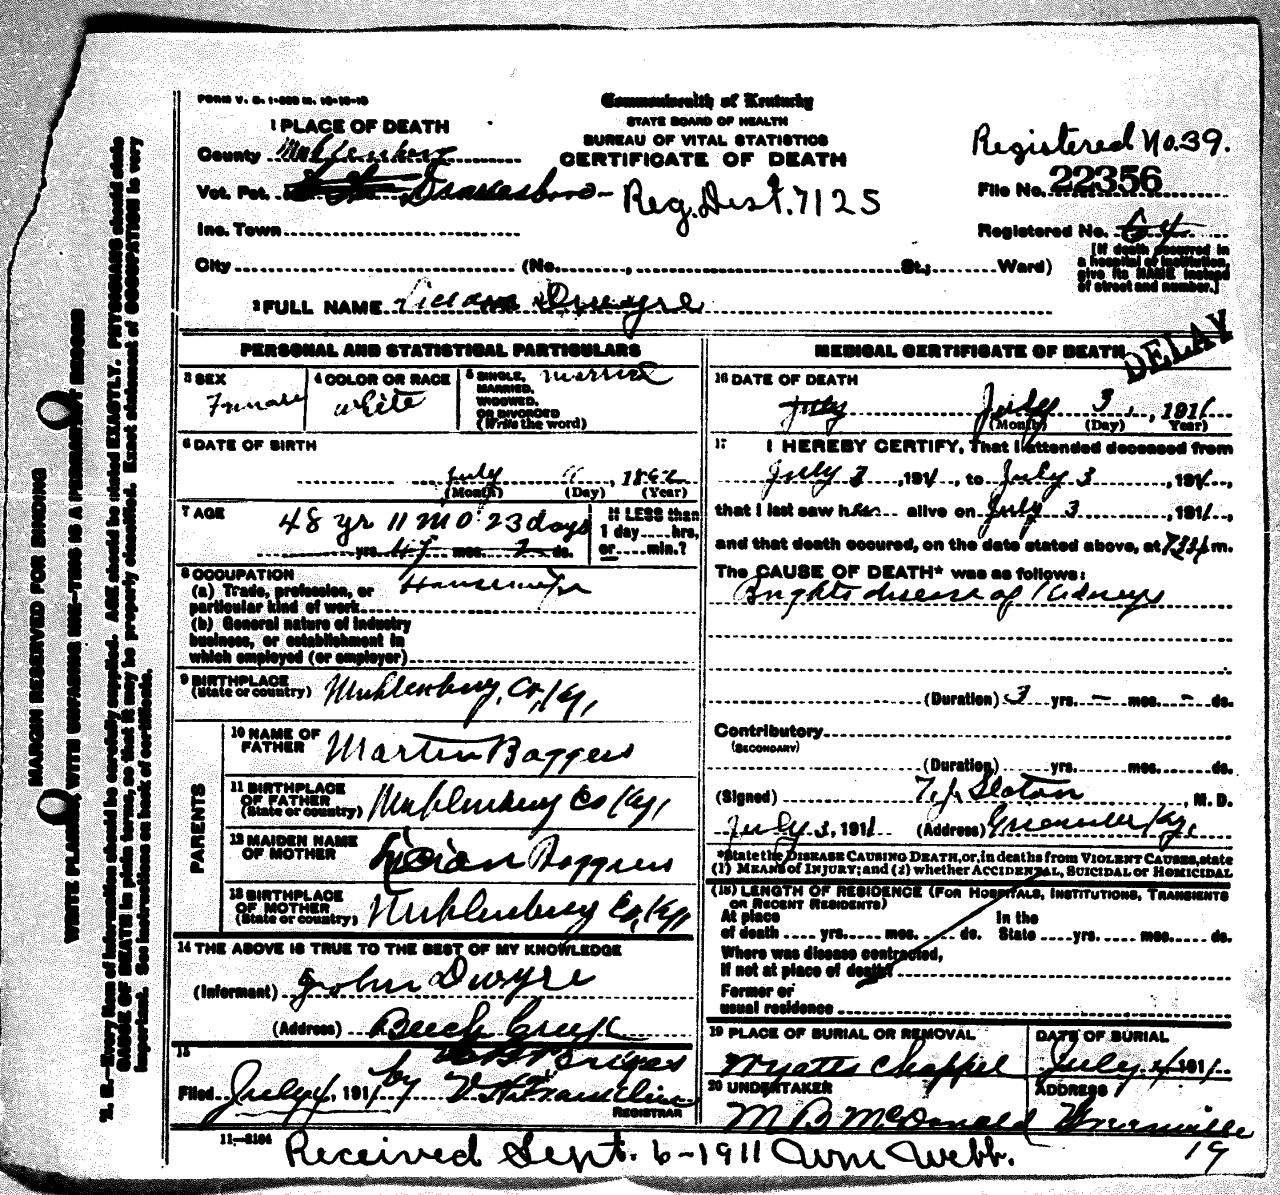 FORM V. S. 1-
Commonwealth of Kentucky
STATE BOARD OF HEALTH
BUREAU OF VITAL STATISTICS
CERTIFICATE OF DEATH
1 PLACE OF DEATH
County Muhlenberg
Vot. Pct. Drakesboro
Inc. Town
City (No. , St.; Ward)
Reg. Dist. 7125
Registered No. 39.
File No. 22356
Registered No. 64
[If death occurred in a hospital or institution, give its NAME instead of street and number.]
2 FULL NAME Dwyre
PERSONAL AND STATISTICAL PARTICULARS
3 SEX Female
4 COLOR OR RACE White
5 SINGLE, MARRIED, WIDOWED, OR DIVORCED (Write the word) married
6 DATE OF BIRTH
July , 1862
(Month) (Day) (Year)
7 AGE
48 yr 11 mo 23 days
yrs. mos. ds.
If LESS than 1 day hrs. or min.?
8 OCCUPATION
(a) Trade, profession, or particular kind of work Housewife
(b) General nature of industry business, or establishment in which employed (or employer)
9 BIRTHPLACE (State or country) Muhlenburg, Co, Ky,
PARENTS
10 NAME OF FATHER Martin Boggess
11 BIRTHPLACE OF FATHER (State or country) Muhlenburg Co Ky,
12 MAIDEN NAME OF MOTHER Boggess
13 BIRTHPLACE OF MOTHER (State or country) Muhlenburg Co, Ky,
14 THE ABOVE IS TRUE TO THE BEST OF MY KNOWLEDGE
(Informant) John Dwyre
(Address) Beech Creek
15
Filed July 4, 1911 by Franklin
REGISTRAR
11-3104
MEDICAL CERTIFICATE OF DEATH
DELAY
16 DATE OF DEATH
July July 3, , 1911
(Month) (Day) (Year)
17 I HEREBY CERTIFY, That I attended deceased from
July 2, 1911, to July 3, 1911,
that I last saw her alive on July 3, 1911,
and that death occured, on the date stated above, at m.
The CAUSE OF DEATH* was as follows:
Brights disease of Kidneys
(Duration) 3 yrs. – mos. – ds.
Contributory
(SECONDARY)
(Duration) yrs. mos. ds.
(Signed) T. J. Slaton, M. D.
July 3, 1911 (Address) Greenville Ky,
*State the DISEASE CAUSING DEATH, or, in deaths from VIOLENT CAUSES, state (1) MEANS of INJURY; and (2) whether ACCIDENTAL, SUICIDAL or HOMICIDAL
(18) LENGTH OF RESIDENCE (FOR HOSPITALS, INSTITUTIONS, TRANSIENTS OR RECENT RESIDENTS)
At place of death yrs. mos. ds. In the State yrs. mos. ds.
Where was disease contracted, If not at place of death?
Former or usual residence
19 PLACE OF BURIAL OR REMOVAL Wyatts Chappel
DATE OF BURIAL July 4, 1911
20 UNDERTAKER M B McDonald
ADDRESS Greenville
Received Sept. 6-1911 Wm Webb.
19
MARGIN RESERVED FOR BINDING
WRITE PLAINLY, WITH UNFADING INK—THIS IS A PERMANENT RECORD
N. B.—Every item of information should be carefully supplied. AGE should be stated EXACTLY. PHYSICIANS should state
CAUSE OF DEATH in plain terms, so that it may be properly classified. Exact statement of OCCUPATION is very
important. See instructions on back of certificate.